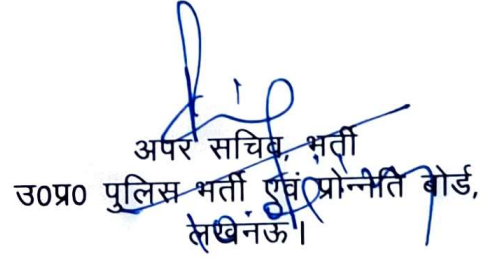 अपर सचिव, भर्ती
उ०प्र० पुलिस भर्ती एवं प्रोन्नति बोर्ड,
लखनऊ।